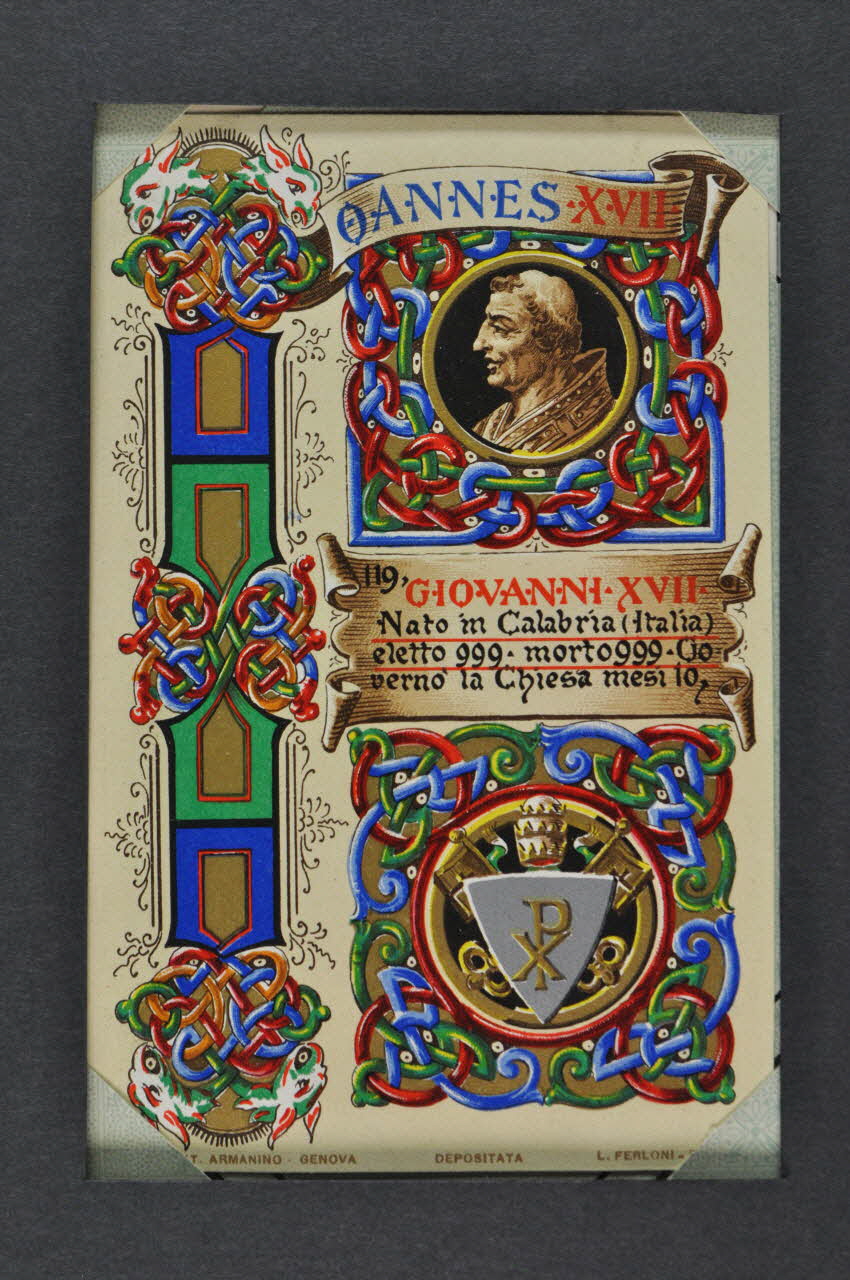 IOANNES·XVII
119,
·GIOVANNI·XVII·
Nato in Calabria (Italia)
eletto 999· morto 999·Go=
verno' la Chiesa mesi 10,
T. ARMANINO - GENOVA DEPOSITATA L. FERLONI -